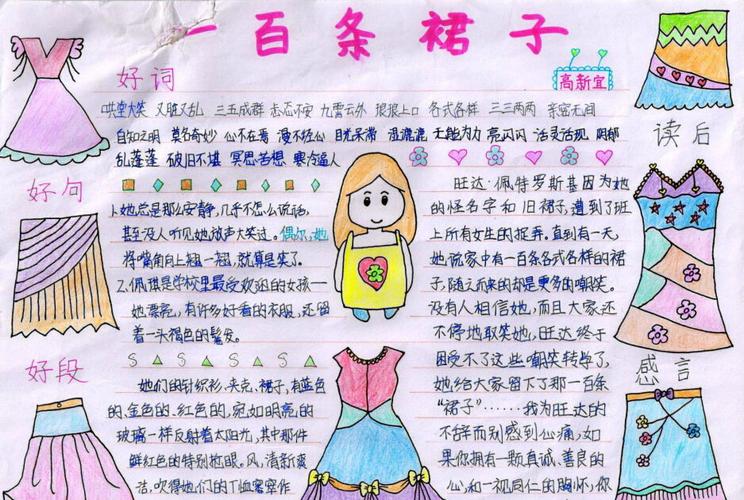 一百条裙子
高新宜
好词
哄堂大笑 又脏又乱 三五成群 忐忑不安 九霄云外 琅琅上口 各式各样 三三两两 亲密无间
自知之明 莫名奇妙 心不在焉 漫不经心 目光呆滞 湿漉漉 无能为力 亮闪闪 活灵活现 阴郁
乱蓬蓬 破旧不堪 冥思苦想 寒冷逼人
好句
1.她总是那么安静,几乎不怎么说话,
甚至没人听见她放声大笑过。偶尔,她
将嘴角向上翘一翘,就算是笑了。
2.佩琪是学校里最受欢迎的女孩—
她漂亮,有许多好看的衣服,还留
着一头褐色的鬈发。
好段
她们的针织衫、夹克、裙子,有蓝色
的、金色的、红色的,宛如明亮的
玻璃一样反射着太阳光,其中那件
鲜红色的特别抢眼。风,清新爽
洁,吹得她们的T恤窸窣作
读后
感言
旺达·佩特罗斯基因为她
的怪名字和旧裙子,遭到了班
上所有女生的捉弄。直到有一天,
她说家中有一百条各式各样的裙
子,随之而来的却是更多的嘲笑。
没有人相信她,而且大家还
不停地取笑她,旺达终于
因受不了这些嘲笑转学了,
她给大家留下了那一百条
“裙子”……我为旺达的
不辞而别感到心痛,如
果你拥有一颗真诚、善良的
心,和一视同仁的胸怀,你